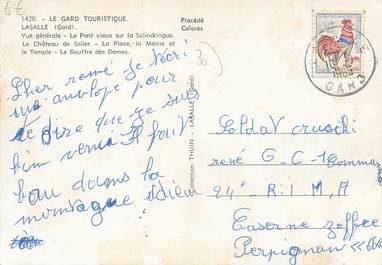 6€
1420. - LE GARD TOURISTIQUE.
LASALLE (Gard).
Vue générale - Le Pont vieux sur la Salindringue.
Le Château de Solier - La Place, la Mairie et
le Temple - Le Gouffre des Dames.
Procédé
Colorès
30
Cher remé Je t'écri
une anvlope pour
te dire que je sui
bien venu Il fait
bau dans la
montagne adieu
Collection THUIN - LASALLE (Gard)
GARD
Soldat
rené G-C-1
24e R.I.M.A
Caserne
Perpignan 66